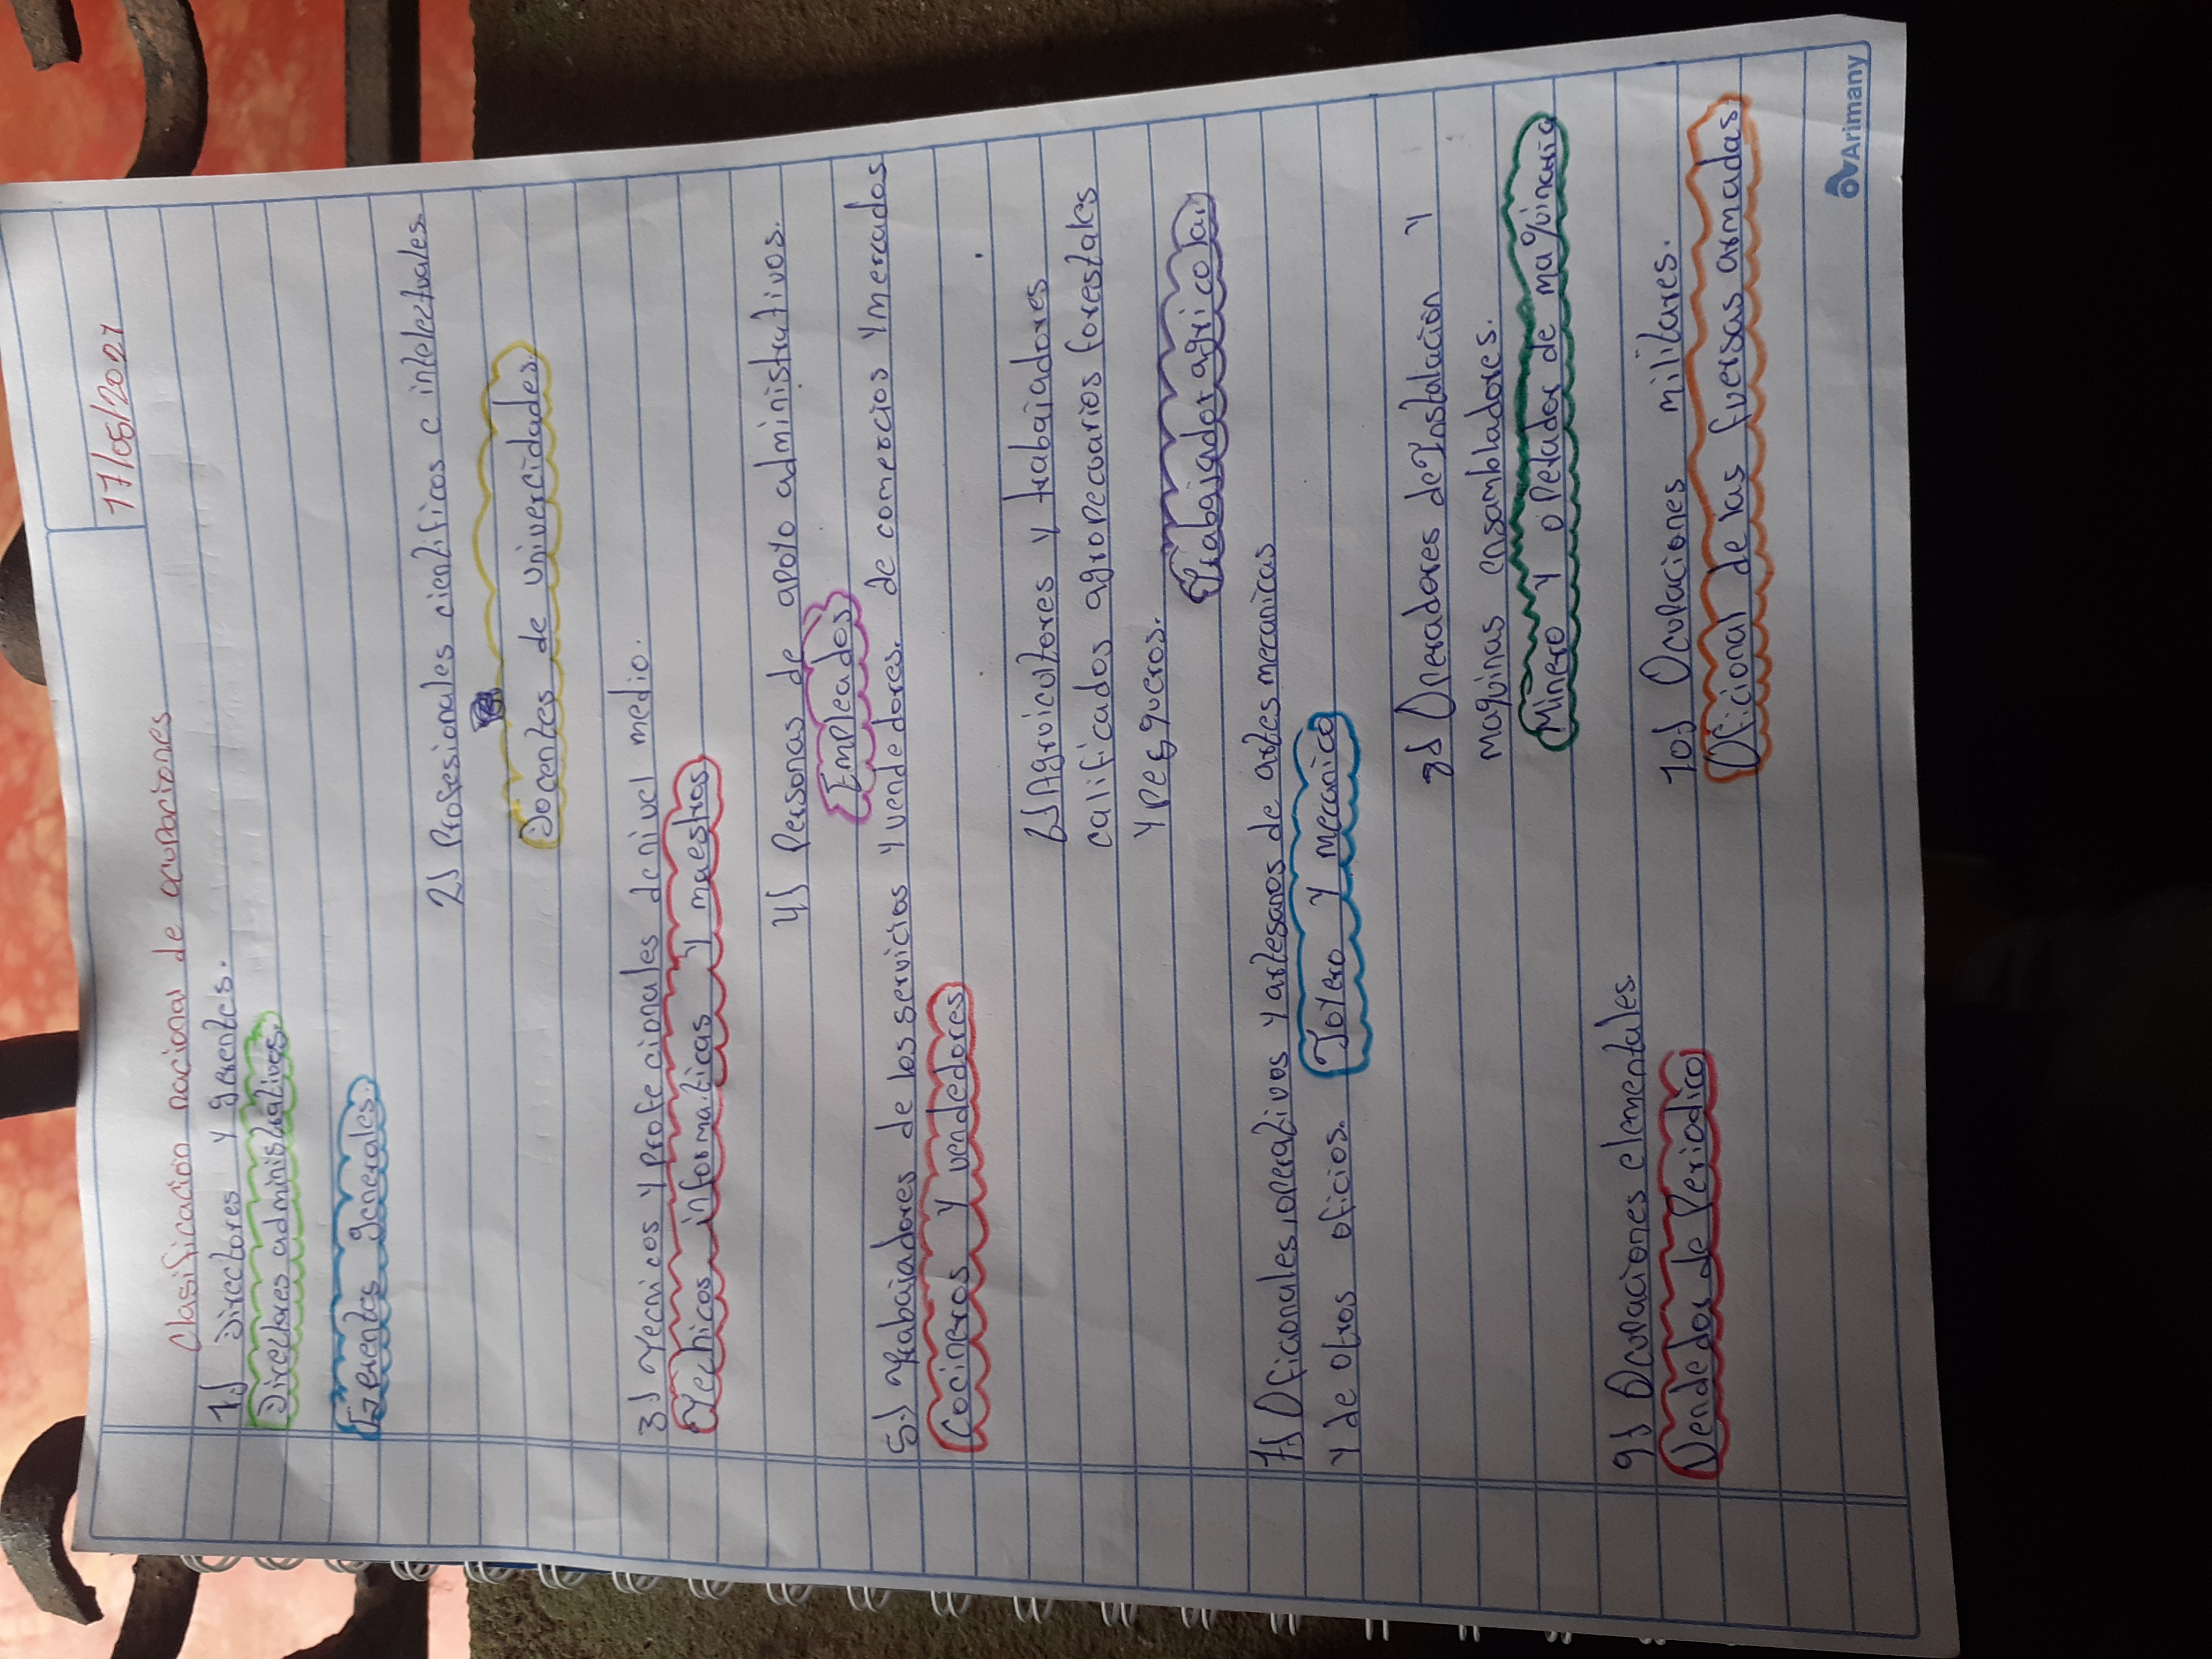 17/05/2021
Clasificacion nacional de ocupaciones
1.) Directores y gerentes.
Directores administrativos.
Gerentes generales.
2) Profesionales cientificos e intelectuales
Docentes de univercidades.
3.) Tecnicos y profecionales de nivel medio.
Technicos informaticas y maestros
4) Personas de apoyo administrativos.
Empleados
5.) Trabajadores de los servicios y vendedores. de comercios y mercados
Cocineros y vendedores
6) Agruicultores y trabajadores
calificados agropecuarios forestales
y pesqueros.
Trabajador agricola.
7.) Oficionales, operativos y artesanos de artes mecanicas
y de otros oficios.
Joyero y mecanico
8) Operadores de Instalacion y
maquinas ensambladores.
Minero y operador de maquinaria
9) Ocupaciones elementales.
Vendedor de Periodico
10) Ocupaciones militares.
Oficional de las fuersas armadas.
Arimany